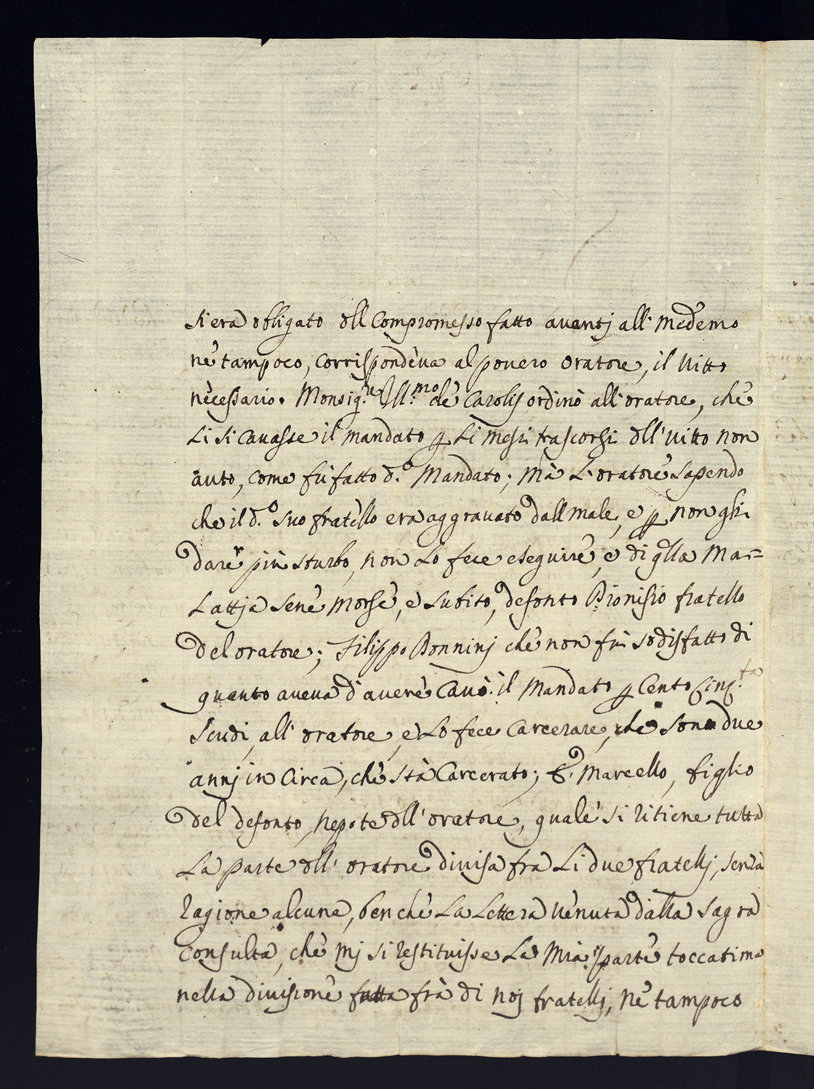 si era obligato dll Compromesso fatto auantj all' medemo
nè tampoco, corrispondeua al pouero oratore, il uitto
nècessario. Monsig.re Ill.mo de Carolis ordinò all'oratore, chè
Li si Cauasse il mandato p Li mesi trascorsi dll'uitto non
auto, come fù fatto d.o Mandato; mà L'oratore sapendo
che il d.o suo fratèllo era aggrauato dall male, e p non gli
darè più sturbo, non Lo fece eseguirè, e di qlla Ma=
Lattja senè morsè, e subito, defonto Dionisio fratello
Del oratore; Filippo Bonninj chè non fu sodisfatto di
quanto aueua d'auerè Cauò il Mandato p Cento Cinq.ta
Scudi, all' oratore, e Lo fece Carcerare, che sono due
annj in Circa, chè stà Carcerato; E Marcello, figlio
del defonto, Nepote dll'oratore, qualè si ritiene tutta
La parte dll' oratore diuisa fra Li due fratellj, senza
ragione alcuna, ben chè La Lettera uènuta dalla Sagra
Consulta, chè mj si restituisse La Mia partè toccatima
nella diuisionè fatta frà di noj fratellj, nè tampoco